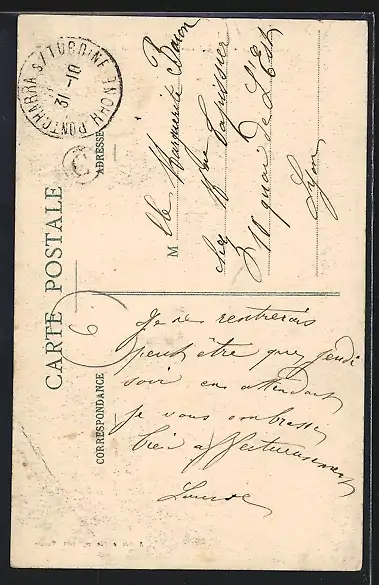 CARTE POSTALE
CORRESPONDANCE
ADRESSE
PONTCHARRA S/TURDINE RHONE
31 -10
C
6
M lle Marguerite Baron
chez Mme
310 quai de l'Est
Lyon
Je ne rentrerais
peut être que jeudi
soir en attendant
je vous embrasse
bien affectueusement
Louise